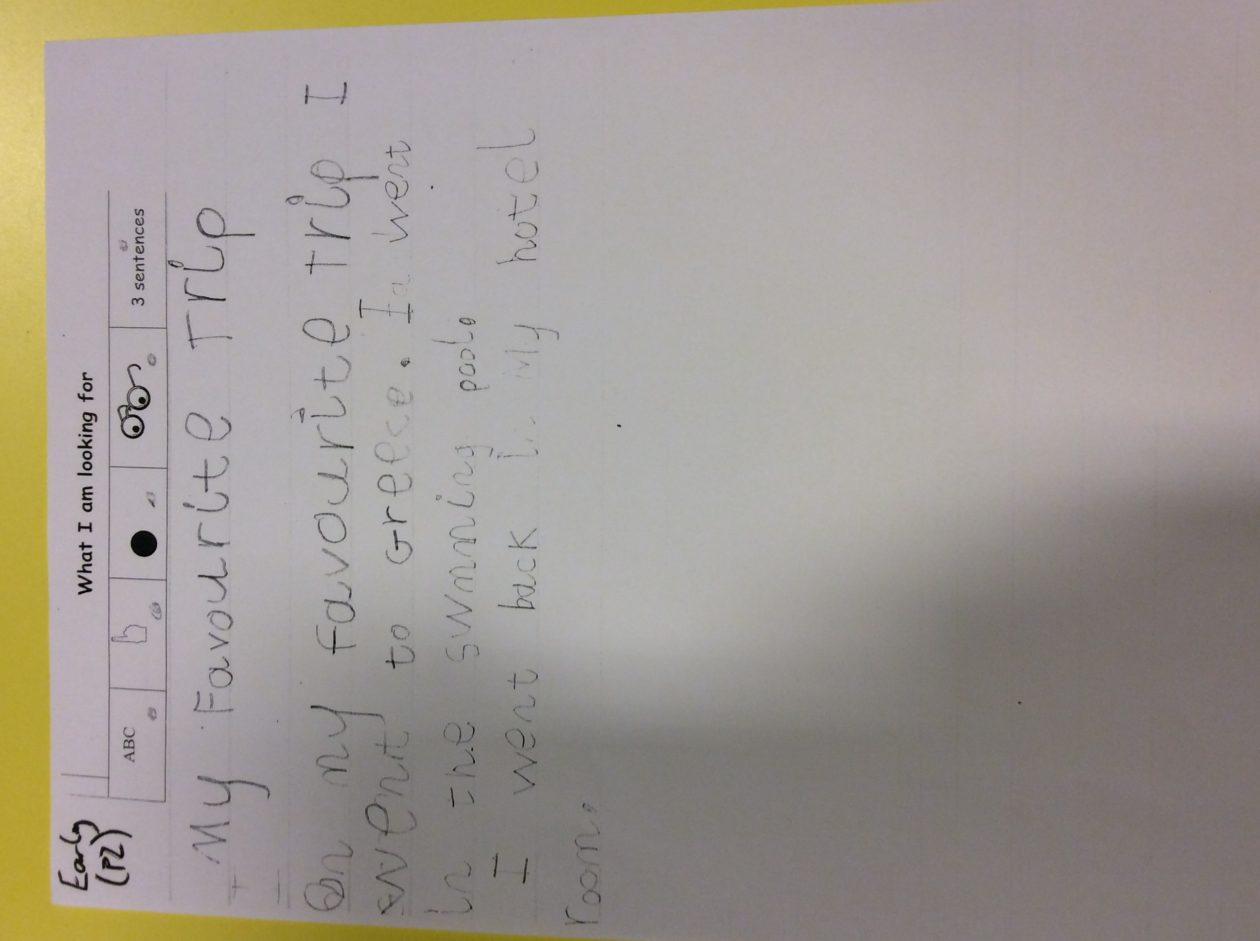 Early
(P2)
What I am looking for
ABC 3 sentences
My Favourite Trip
On my favourite trip I
went to Greece. I went
in the swnning pool.
I went back in My hotel
room.